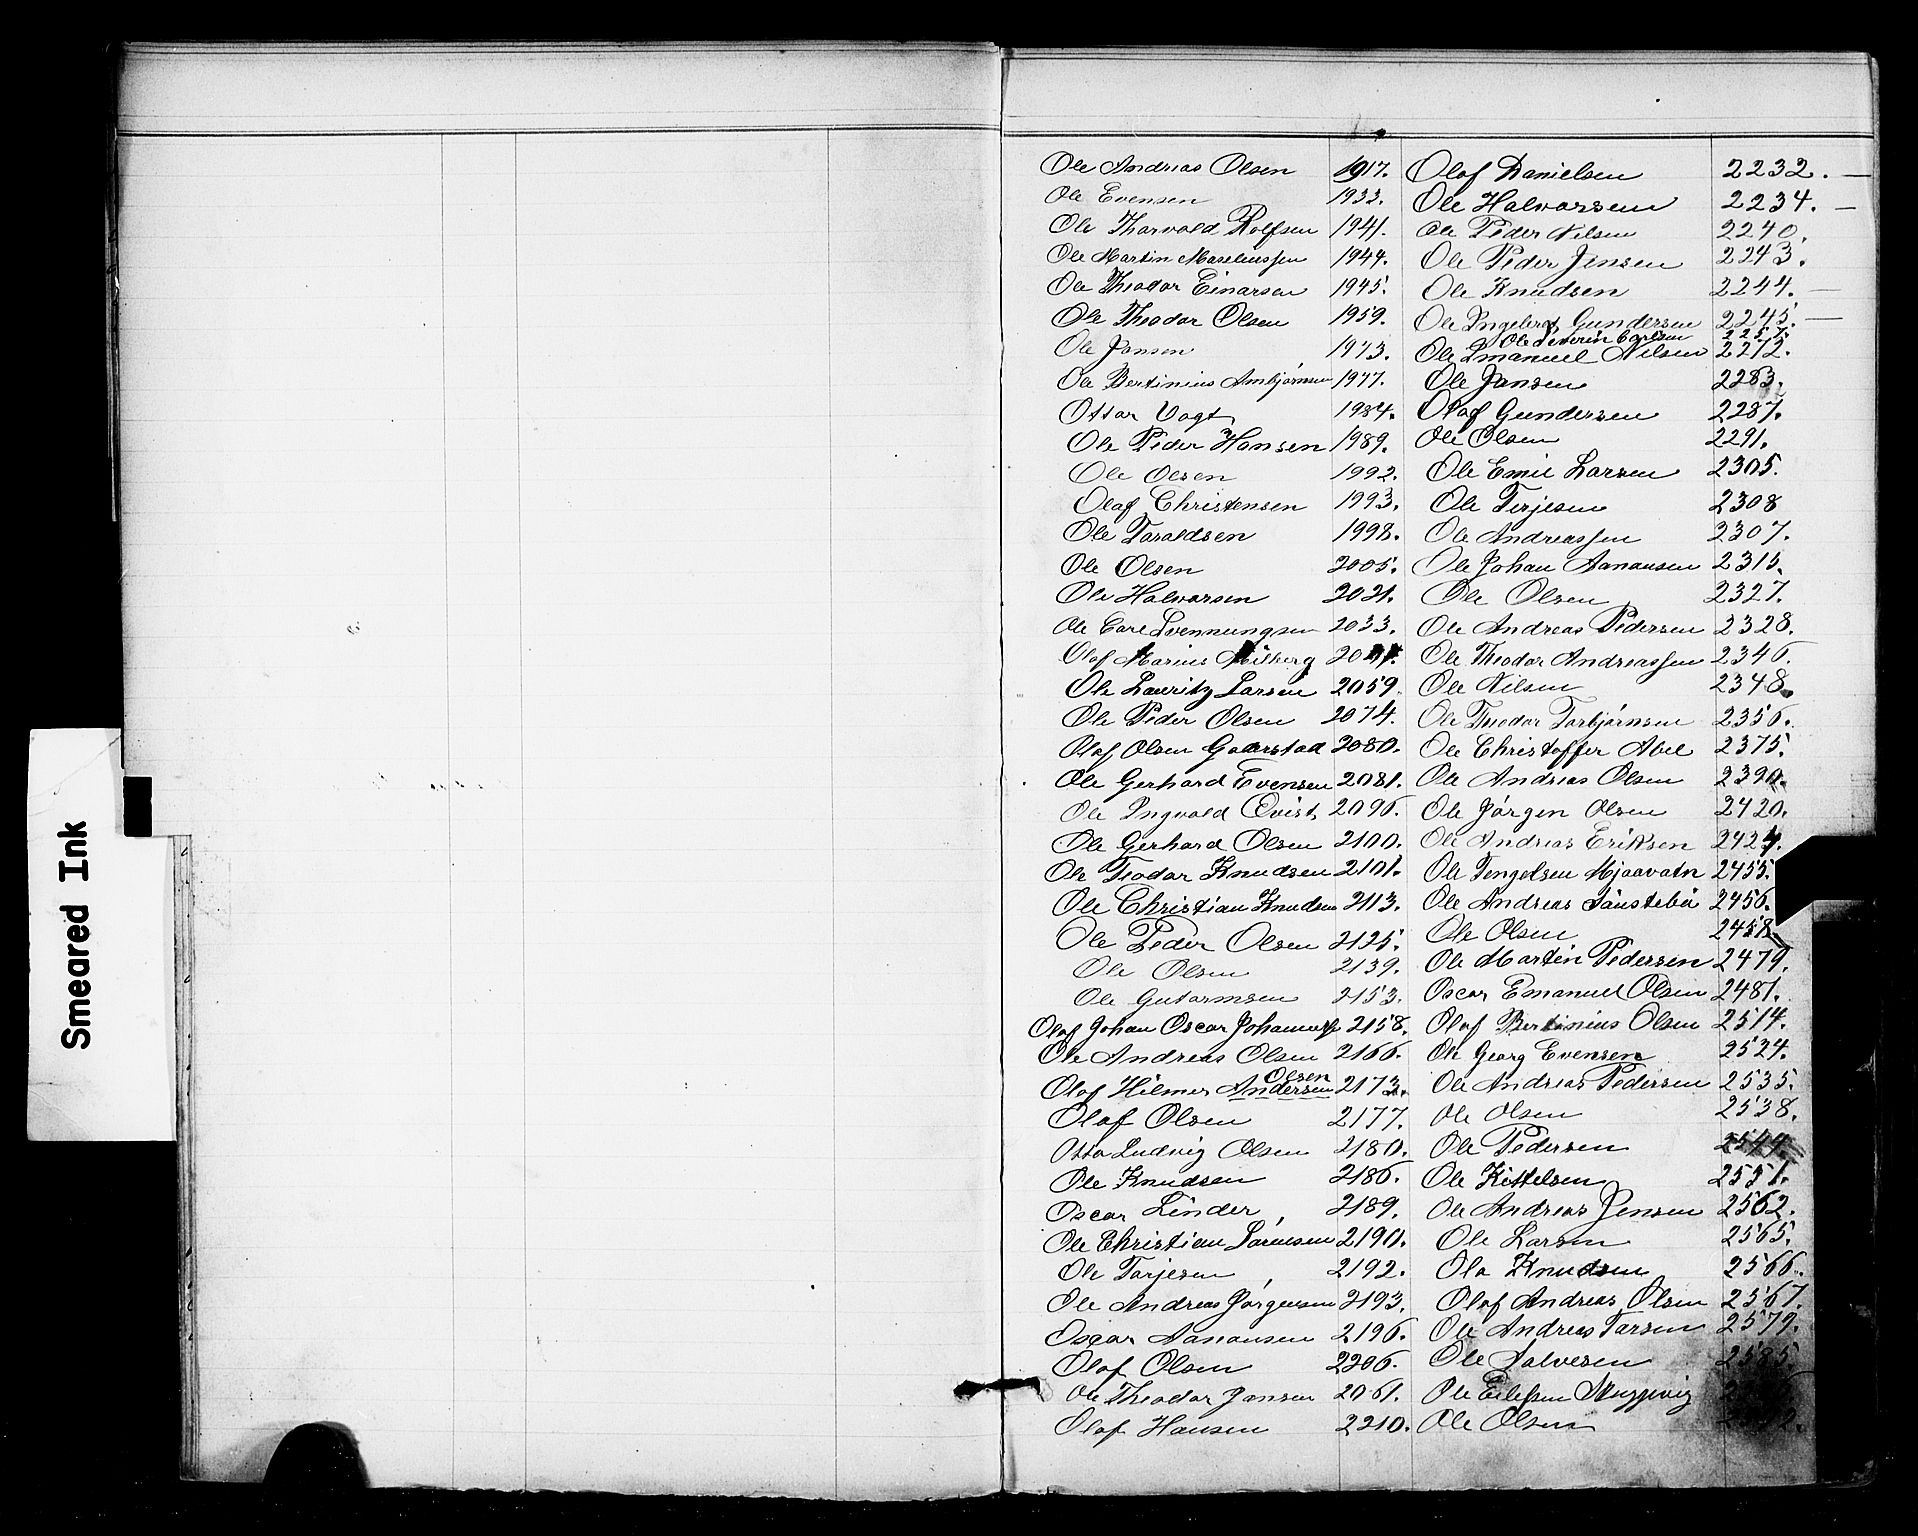 Smeared Ink
Ole Andreas Olsen 1917. Olaf Danielsen 2232. —
Ole Evensen 1933. Ole Halvorsen 2234. —
Ole Thorvald Rolfsen 1941. Ole Peder Nilsen 2240.
Ole Martin 1944. Ole Peder Jensen 2243.
Ole Theodor Einarsen 1945. Ole Knudsen 2244. —
Ole Theodor Olsen 1959. Ole Ingebrgt Gundersen 2245. —
Ole Severin Carlsen 2257.
Ole Jansen 1973. Ole Emanuel Nilsen 2272.
Ole Bertinius Ambjørnsen 1977. Ole Jansen 2283.
Ottar Vogt 1984. Olaf Gundersen 2287.
Ole Peder Hansen 1989. Ole Olsen 2291.
Ole Olsen 1992. Ole Emil Larsen 2305.
Olaf Christensen 1993. Ole Terjesen 2308
Ole Taraldsen 1998. Ole Andreassen 2307.
Ole Olsen 2005. Ole Johan Aanansen 2315.
Ole Halvorsen 2021. Ole Olsen 2327.
Ole Carl Svennungsen 2033. Ole Andreas Pedersen 2328.
Olaf Marius Milberg Ole Theodor Andreassen 2346.
Ole Lauritz Larsen 2059. Ole Nilsen 2348.
Ole Peder Olsen 2074. Ole Theodor Torbjørnsen 2356.
Olaf Olsen Gaarstad 2080. Ole Christoffer Abel 2375.
Ole Gerhard Evensen 2081. Ole Andreas Olsen 2390.
Ole Ingvald Qvist 2096. Ole Jørgen Olsen 2420.
Ole Gerhard Olsen 2100. Ole Andreas Eriksen 2424.
Ole Teodor Knudsen 2101. Ole Tengelsen Mjaavatn 2455.
Ole Christian Knudsen 2113. Ole Andreas 2456.
Ole Peder Olsen 2125. Ole Olsen 2458
Ole Olsen 2139. Ole Martin Pedersen 2479.
Ole Gutormsen 2153. Oscar Emanuel Olsen 2481.
Olaf Johan Oscar 2158. Olaf Bertinius Olsen 2514.
Ole Andreas Olsen 2166. Ole Georg Evensen 2524.
Olsen
Olaf Hilmer Andersen 2173. Ole Andreas Pedersen 2535.
Olaf Olsen 2177. Ole Olsen 2538.
Otto Ludvig Olsen 2180. Ole Pedersen 2544.
Ole Knudsen 2186. Ole Kittelsen 2551.
Oscar Linder 2189. Ole Andreas Jensen 2562.
Ole Christian Sørensen 2190. Ole Larsen 2565.
Ole Tarjesen 2192. Ola Knudsen 2566.
Ole Andreas Jørgensen 2193. Olaf Andreas Olsen 2567.
Oscar Aanansen 2196. Ole Andreas Larsen 2579.
Olaf Olsen 2206. Ole Salvesen 2585.
Ole Theodor Jansen 2061. Ole Eilefsen
Olaf Hansen 2210. Ole Olsen